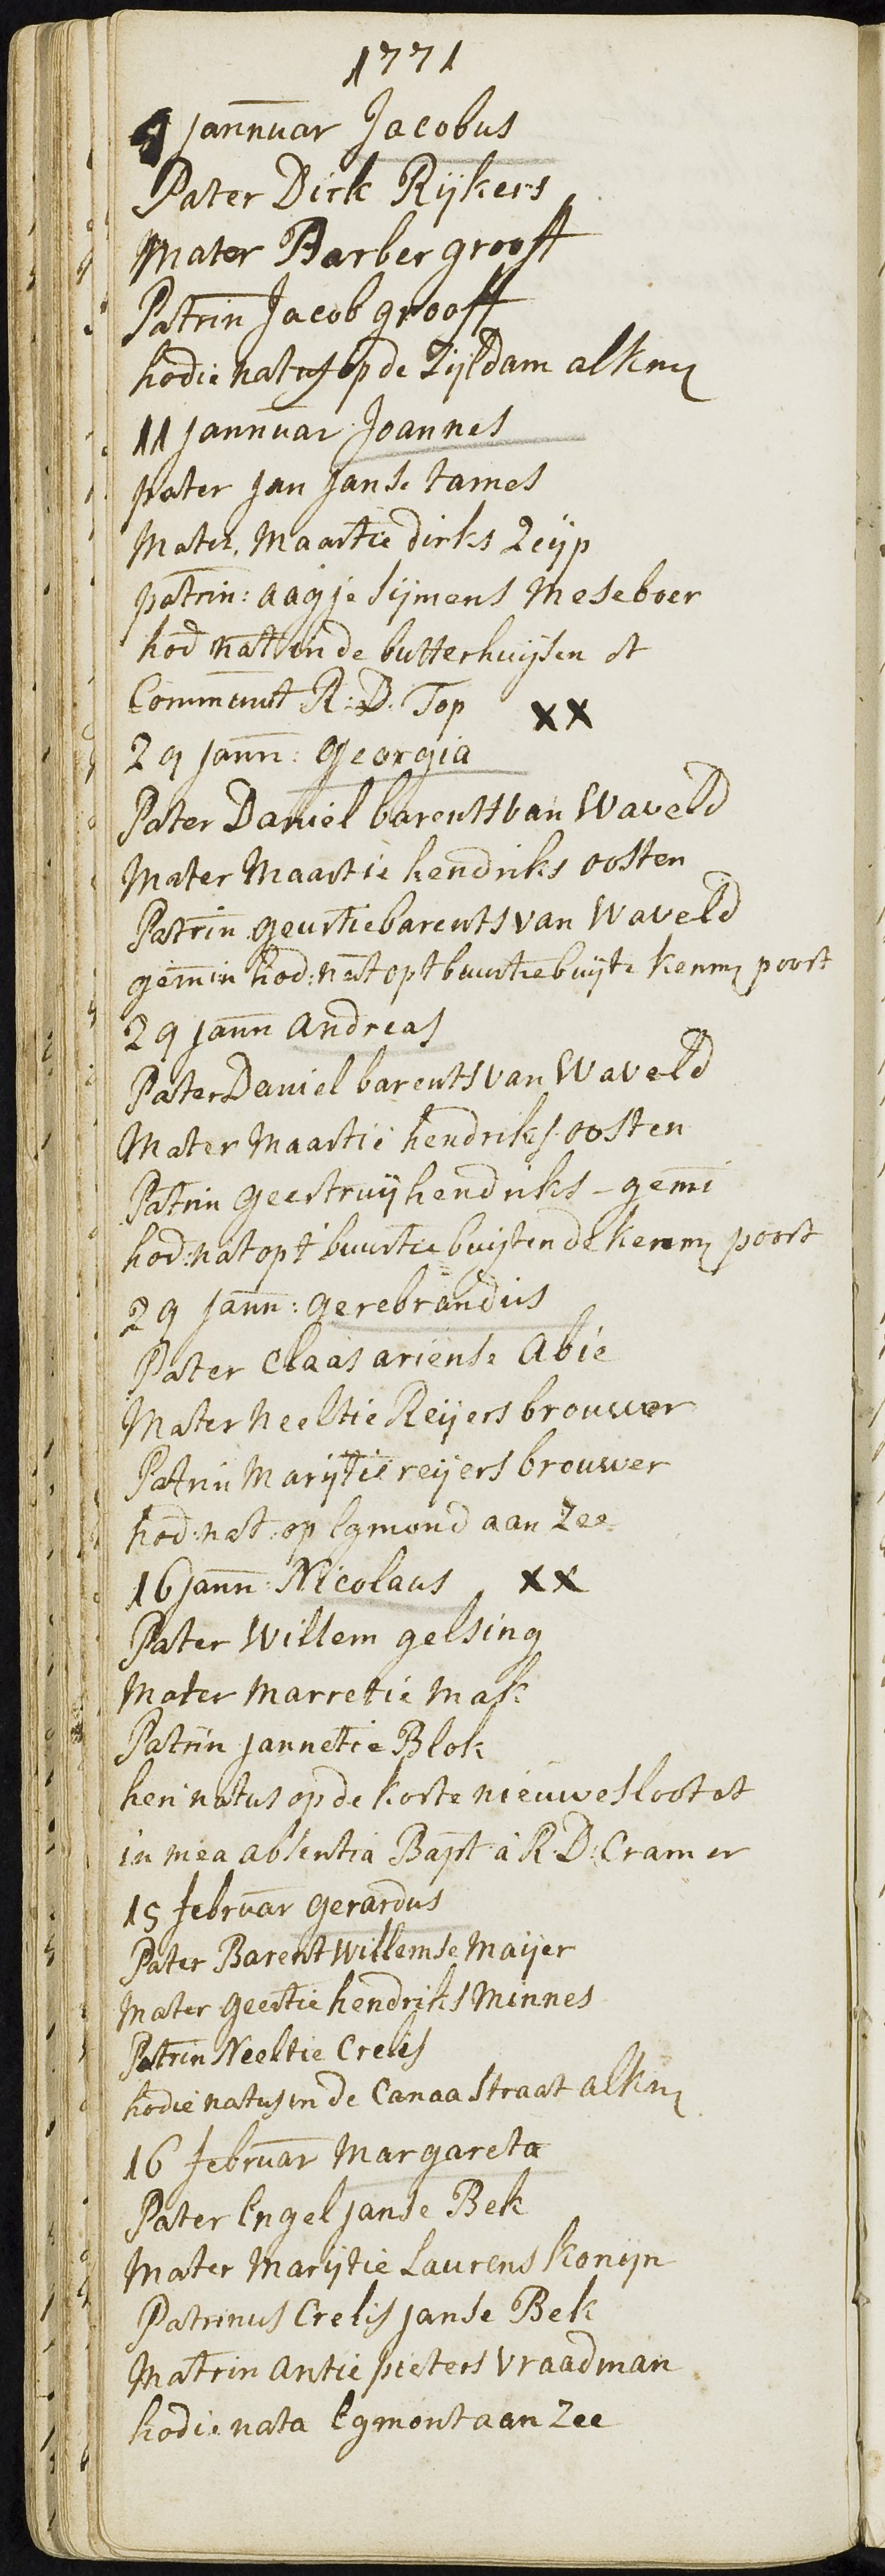 1771
9 jannuar Jacobus
Pater Dirk Rijkers
Mater Barber grooft
Patrin Jacob grooff
hodie natus op de Zijldam alkm
11 jannuar Joannes
pater jan janse tames
Mater, Maartie dirks Zeijp
patrin: aagje Sijmens Meseboer
hod nat in de butterhuijsen et
Communt R: D. Top XX
29 jann: georgia
Pater Daniel barents van Waveld
Mater Maartie hendriks oosten
Patrin geurtie barents van Waveld
gemin hod: nat opt buurtie buijte kenm poort
29 jann andreas
Pater Daniel barents van Waveld
Mater Maartie hendriks oosten
Patrin geertruij hendriks - gemi
hod: nat opt buurtie buijten de kenm poort
29 jann: gerebrandus
Pater Claas ariense Abie
Mater neeltie Reijers brouwer
Patrin Marijtie reijers brouwer
hod: nat: op Egmond aan Zee
16 jann: Nicolaus XX
Pater Willem gelsing
Mater Marretie Mak
Patrin jannetie Blok
heri natus op de korte nieuwesloot et
in mea absentia Bapt à R: D: Cramer
15 februar gerardus
Pater Barent Willemse Maijer
Mater geertie hendriks Minnes
Patrin Neeltie Crelis
hodie natus in de Canaa straat alkm
16 februar Margareta
Pater Engel janse Bek
Mater Marijtie Laurens konijn
Patrinus Crelis janse Bek
Matrin antie pieters Vraadman
hodie nata Egmont aan Zee